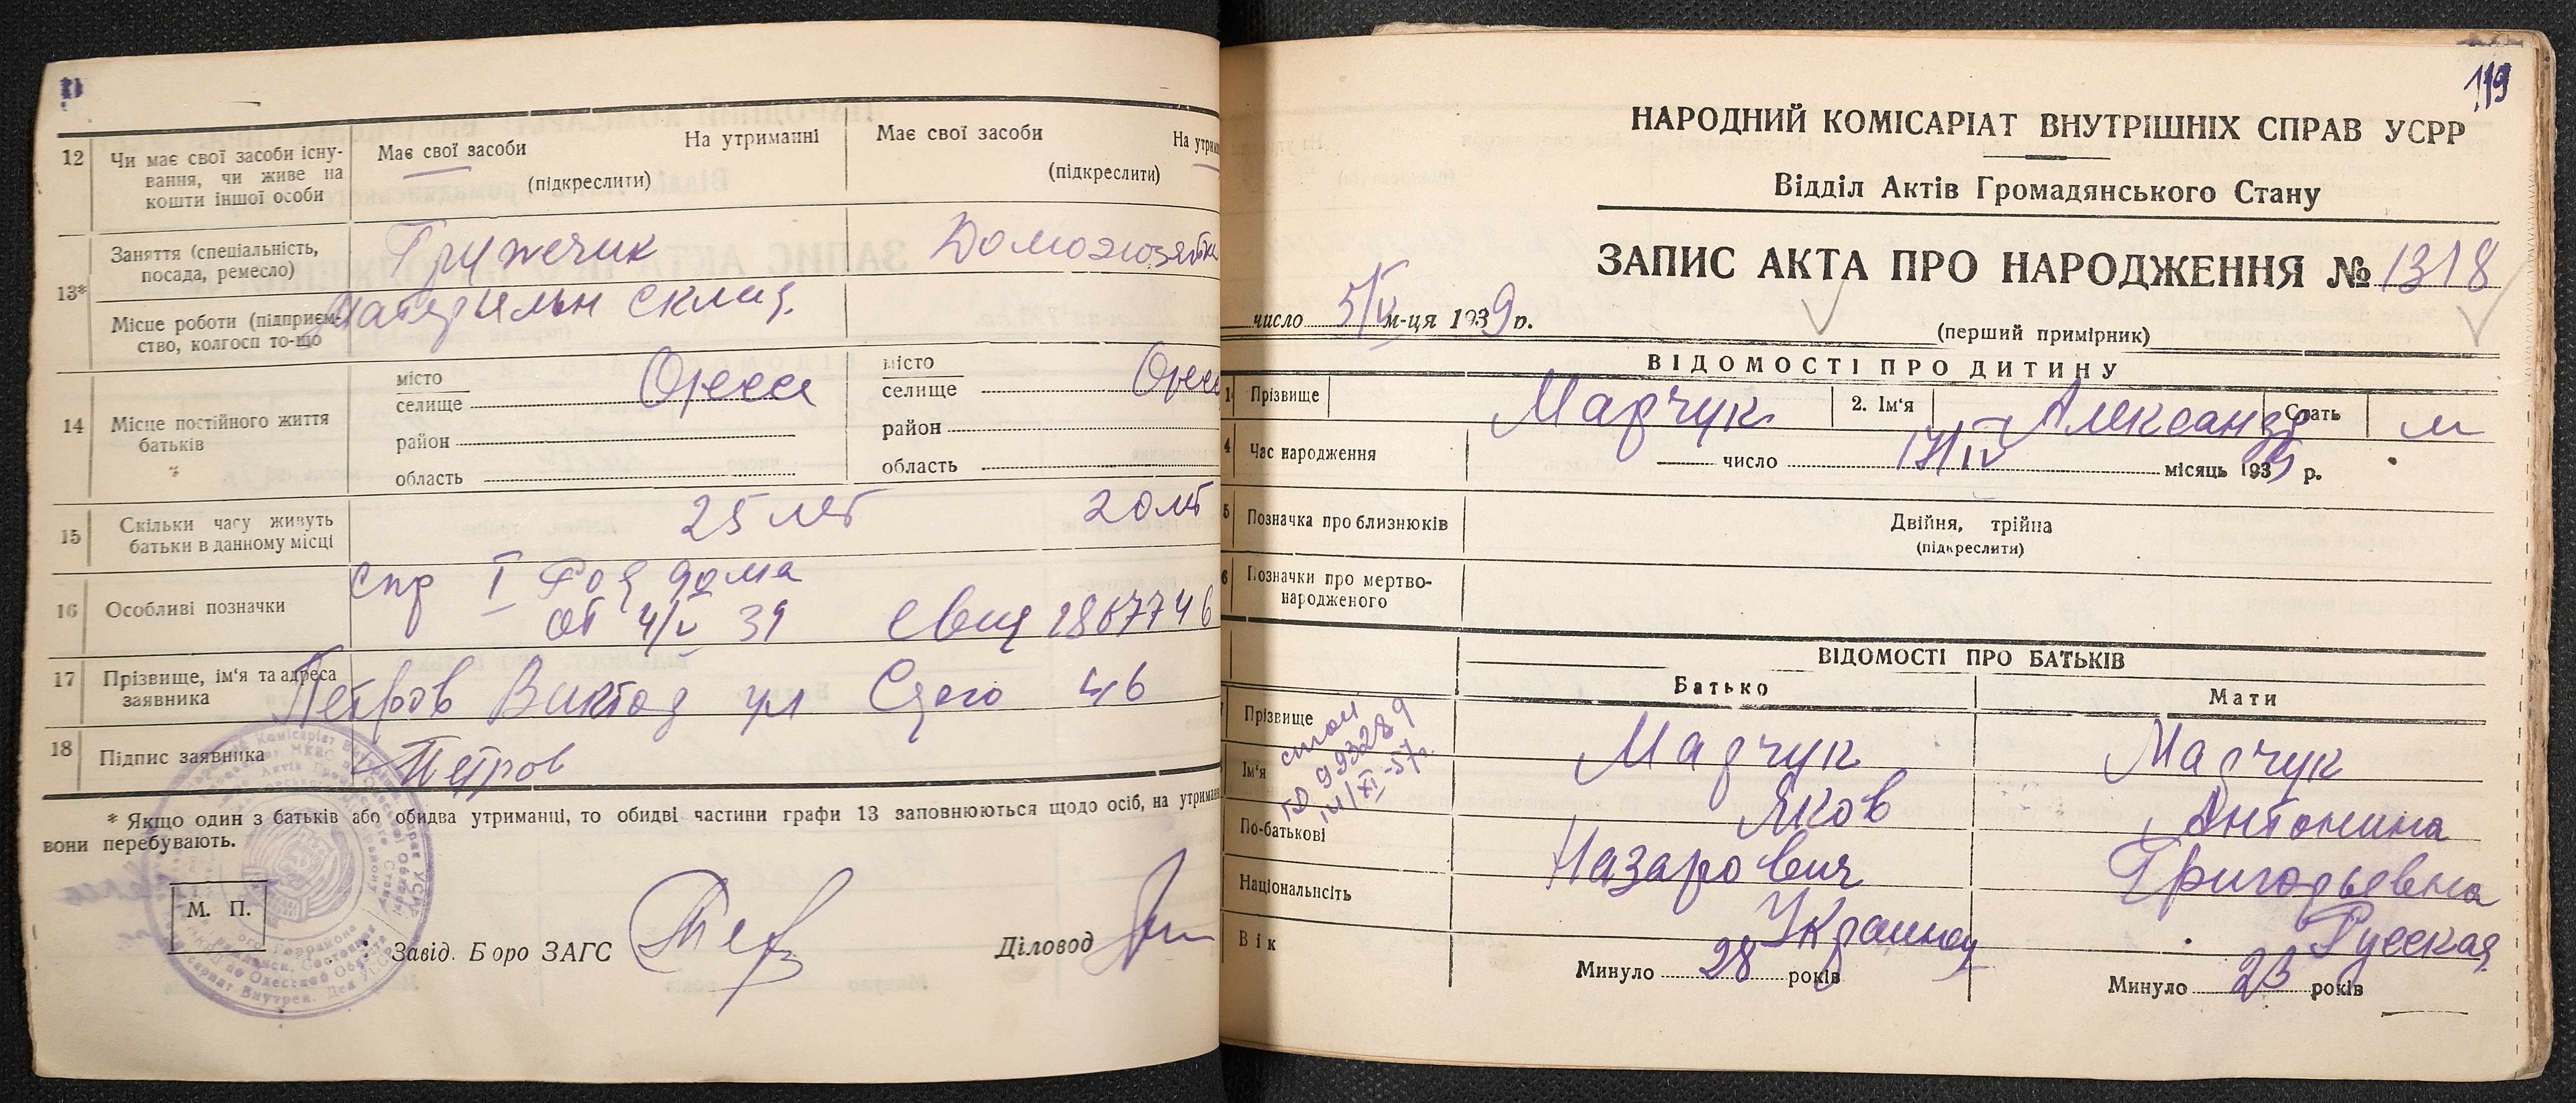 12 Чи має свої засоби існу-
вання, чи живе на
кошти іншої особи
Має свої засоби На утриманні
(підкреслити)
Має свої засоби На утрим
(підкреслити)
13* Заняття (спеціальність,
посада, ремесло)
Грузчик
Домохозяйка
Місце роботи (підприєм-
ство, колгосп то-що
Материальн склад.
14 Місце постійного життя
батьків
місто
селище Одесса
район
область
місто
селище Одесс
район
область
15 Скільки часу живуть
батьки в данному місці
25 лет
20 лет
16 Особливі позначки
Спр I Род дома
от 4/V 39 Свид 286774 6
17 Прізвище, ім'я та адреса
заявника
Петров Виктор ул 46
18 Підпис заявника
Петров
* Якщо один з батьків або обидва утриманці, то обидві частини графи 13 заповнюються щодо осіб, на утриман
вони перебувають.
М. П.
Завід. Бюро ЗАГС
Діловод
119
НАРОДНИЙ КОМІСАРІАТ ВНУТРІШНІХ СПРАВ УСРР
Відділ Актів Громадянського Стану
ЗАПИС АКТА ПРО НАРОДЖЕННЯ № 1318
число 5/V м-ця 1939 р.
(перший примірник)
ВІДОМОСТІ ПРО ДИТИНУ
1 Прізвище Марчук 2. Ім'я Александр Стать м
4 Час народження
число 17/IV місяць 1939 р.
5 Позначка про близнюків
Двійня, трійна
(підкреслити)
6 Позначки про мертво-
народженого
ВІДОМОСТІ ПРО БАТЬКІВ
Батько Мати
Прізвище Марчук Марчук
Ім'я Яков Антонина
По-батькові Назарович Григорьевна
Національність Украинец Русская
Вік
Минуло 28 років
Минуло 23 років